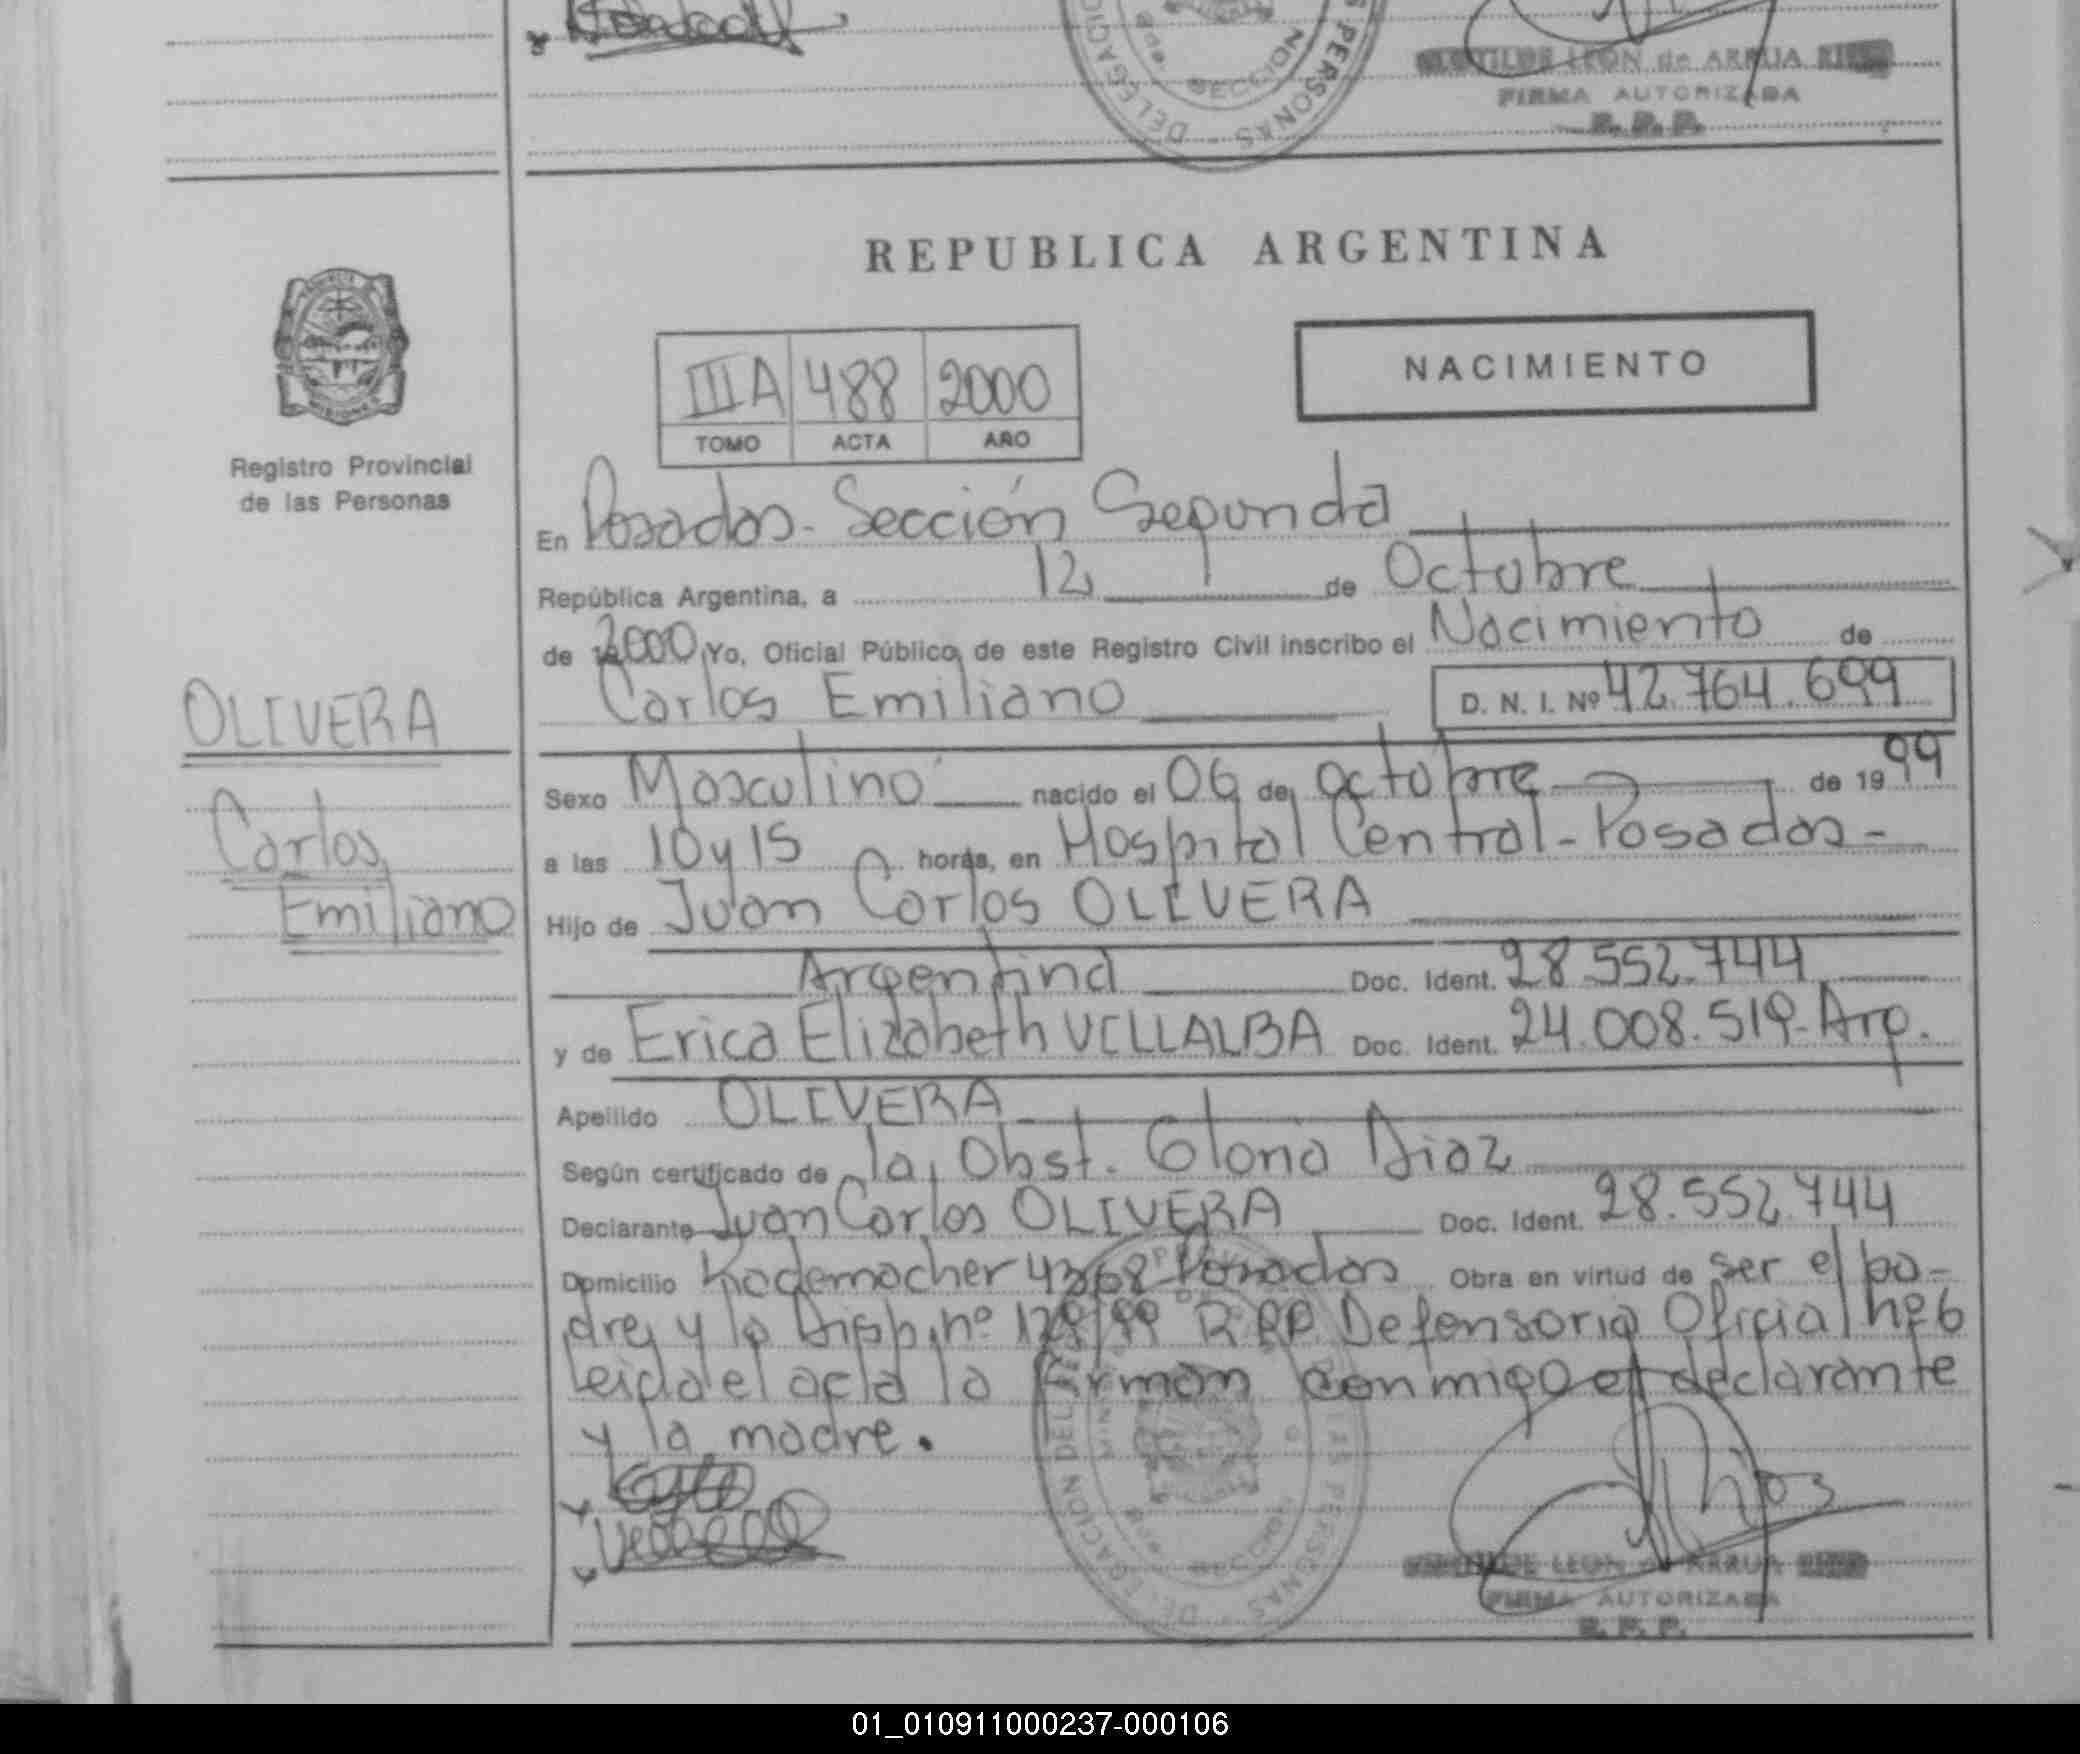 DELEGACIO
S PERSONAS
SECCION
LEON de ARRUA
FIRMA AUTORIZADA
R. P. P.
REPUBLICA ARGENTINA
NACIMIENTO
IIIA 488 2000
TOMO ACTA AÑO
Registro Provincial
de las Personas
En Posadas- Sección Segunda
República Argentina, a 12 de Octubre
de 2000 Yo, Oficial Público, de este Registro Civil inscribo el Nacimiento de
Carlos Emiliano D. N. I. Nº 42.764.699
OLIVERA
Carlos
Emiliano
Sexo Masculino nacido el 06 de octubre de 1999
a las 10 y 15 horas, en Hospital Central-Posadas-
Hijo de Juan Carlos OLIVERA
Argentina Doc. Ident. 28.552.744
y de Erica Elizabeth VILLALBA Doc. Ident. 24.008.519-Arg.
Apellido OLIVERA
Según certificado de la Obst. Gloria Diaz
Declarante Juan Carlos OLIVERA Doc. Ident. 28.552.744
Domicilio Posadas Obra en virtud de ser el pa-
dre y la Disp. nº RPP Defensoria Oficial nº 6
leida el acta la firman conmigo el declarante
y la madre.
DELEGACION DEL REG LAS PERSONAS
SECCION
LEON de ARRUA
FIRMA AUTORIZADA
R. P. P.
01_010911000237-000106